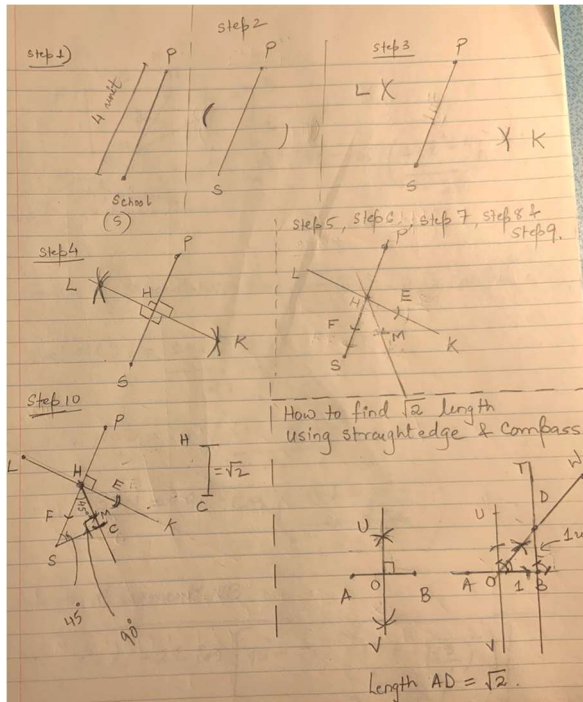 Step 1)
P
4 unit
School
(S)
Step 2
P
S
Step 3
P
L
K
S
Step 4
P
L
H
K
S
Step 5, Step 6, Step 7, Step 8 &
Step 9.
P
L
H
E
F
M
K
S
Step 10
P
L
H
E
F
45°
M
C
K
S
45°
90°
H
= √2
C
How to find √2 length
using straightedge & Compass
U
A
O
B
V
T
W
D
U
1u
A
O
1
B
V
Length AD = √2.